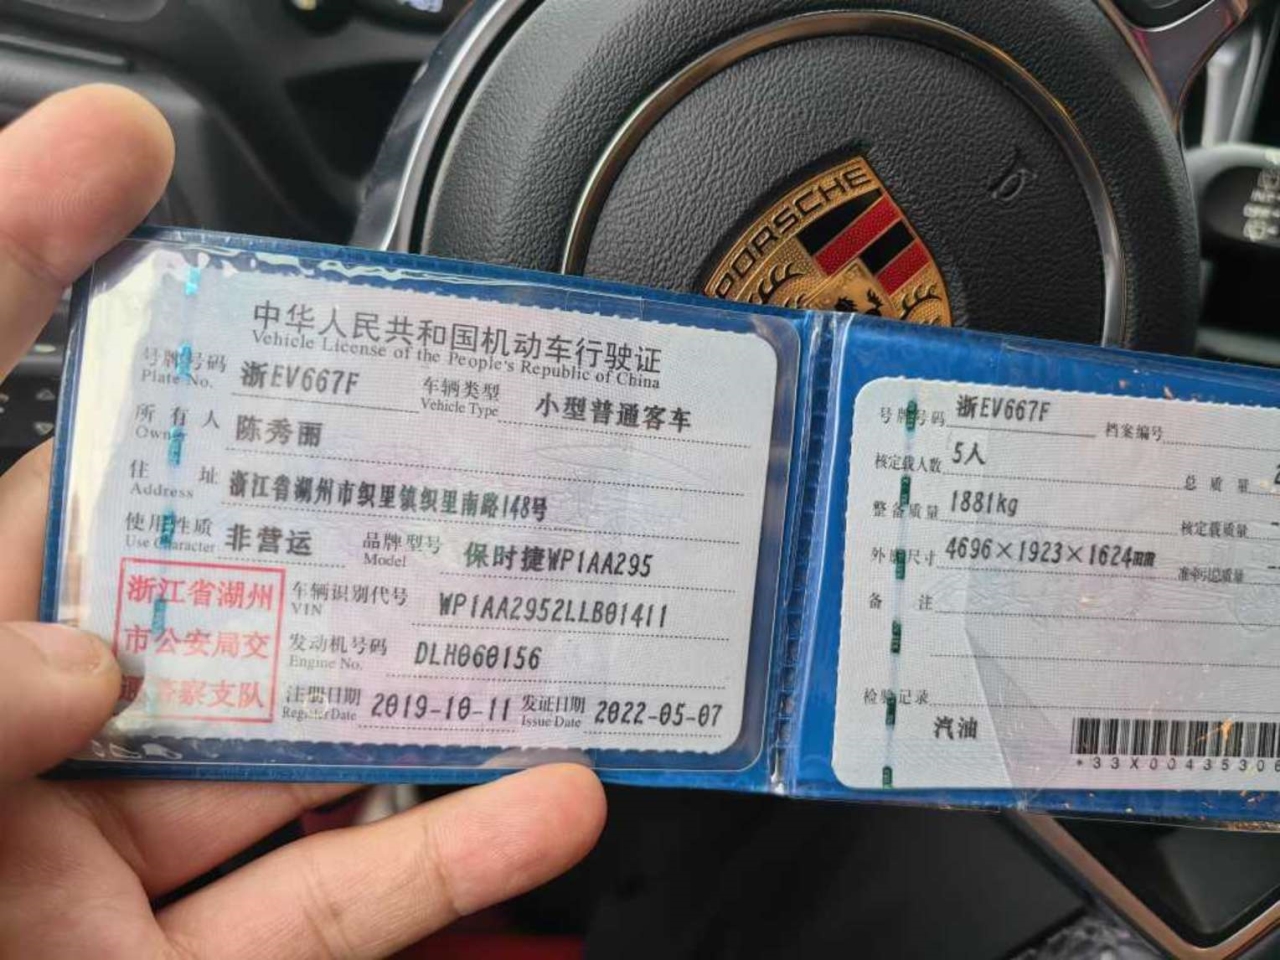 PORSCHE
中华人民共和国机动车行驶证
Vehicle License of the People's Republic of China
号牌号码 浙EV667F 车辆类型 小型普通客车
Plate No. Vehicle Type
所有人 陈秀丽
Owner
住址 浙江省湖州市织里镇织里南路148号
Address
使用性质 非营运 品牌型号 保时捷WP1AA295
Use Character Model
浙江省湖州
市公安局交
通警察支队
车辆识别代号 WP1AA2952LLB01411
VIN
发动机号码 DLH060156
Engine No.
注册日期 2019-10-11 发证日期 2022-05-07
Register Date Issue Date
号牌号码 浙EV667F 档案编号
核定载人数 5人 总质量
整备质量 1881kg 核定载质量
外廓尺寸 4696×1923×1624mm 准牵引总质量
备注
检验记录
汽油
*33X0043530